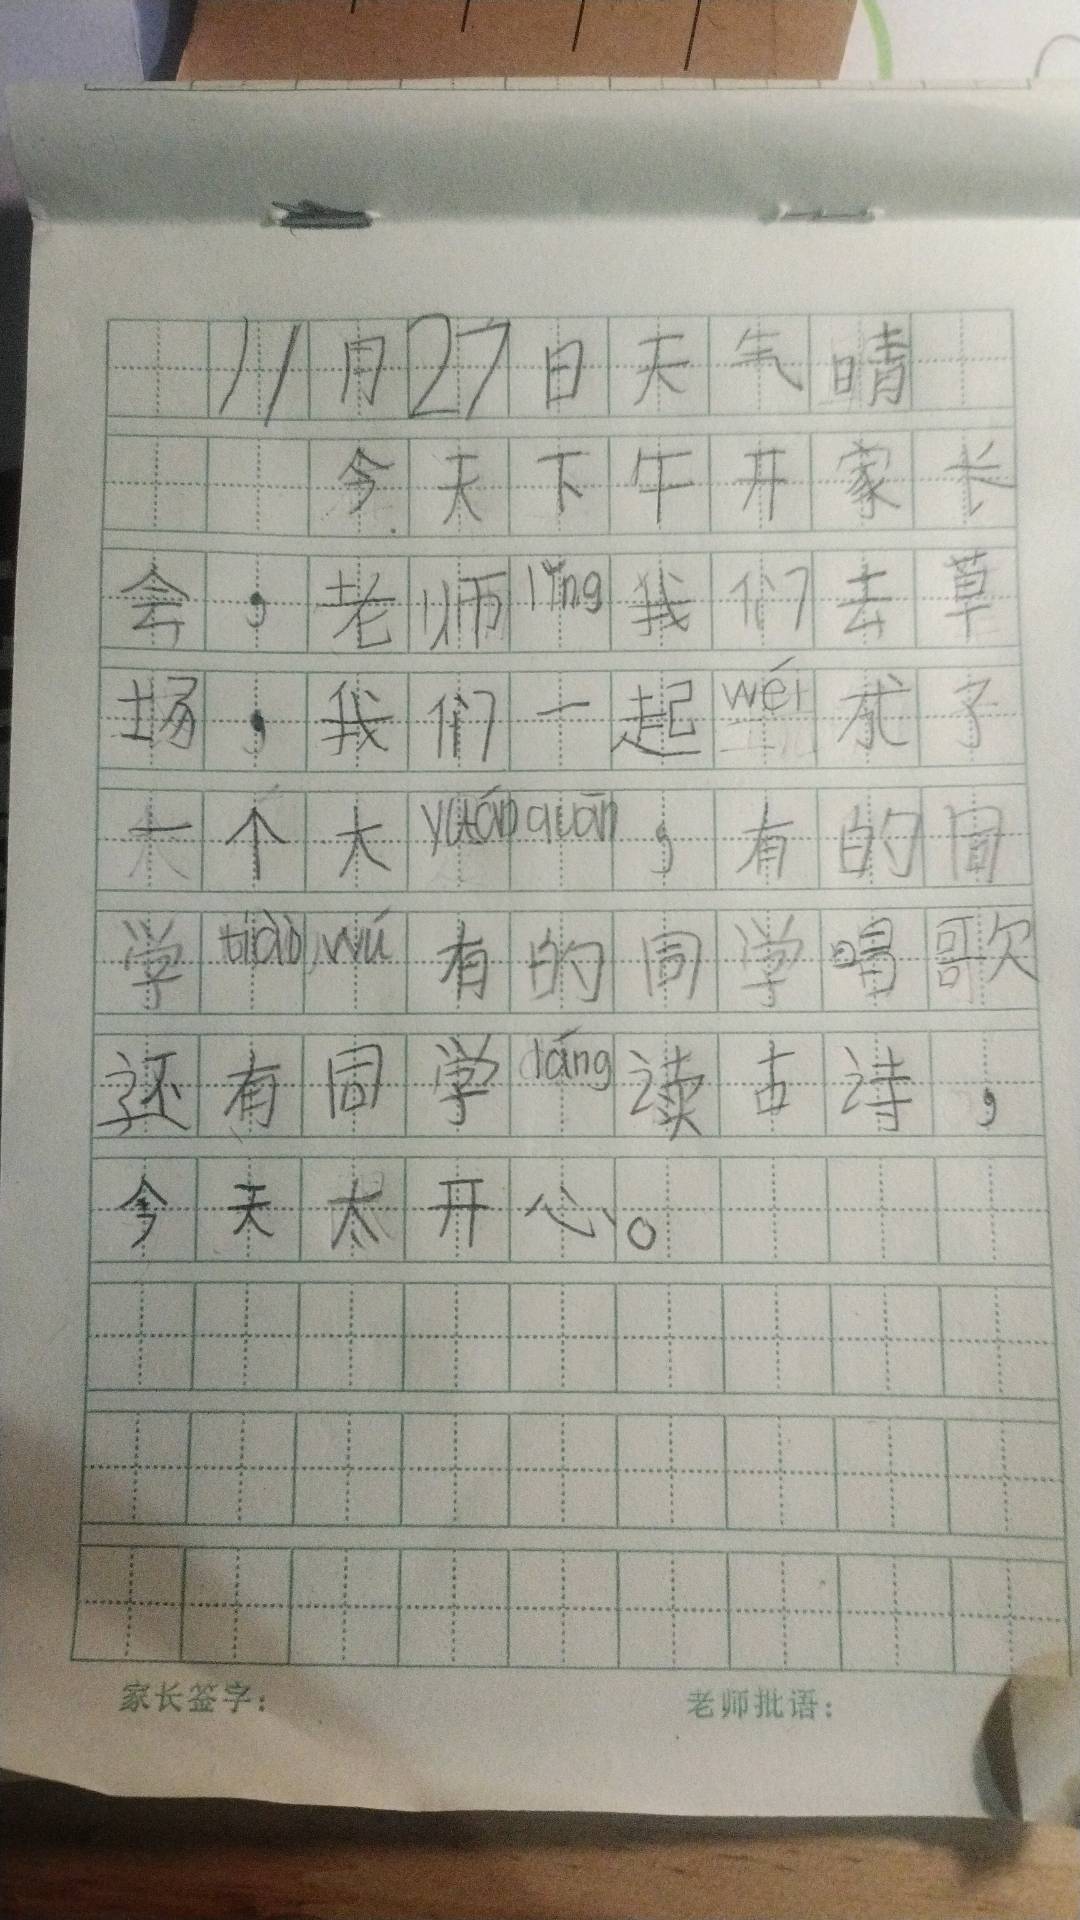 11月27日天气晴
今天下午开家长
会，老师lǐng我们去草
场，我们一起wéi成了
一个大yuánquān，有的同
学tiàowú有的同学唱歌
还有同学láng读古诗，
今天太开心。
家长签字：
老师批语：